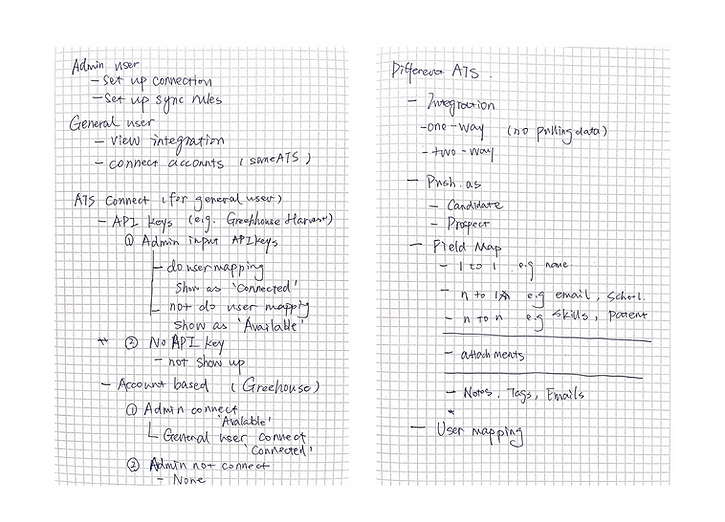 Admin user
- Set up connection
- Set up sync rules
General user
- view integration
- connect accounts (same ATS)
ATS Connect (for general user)
- API keys (e.g. Greenhouse Harvest)
① Admin input API keys
- do user mapping
show as 'Connected'
- not do user mapping
show as 'Available'
* ② No API key
- not show up
- Account based (Greehouse)
① Admin connect
'Avalable'
General user connect
'Connected'
② Admin not connect
- None
Different ATS.
- Integration
- one-way (no pulling data)
- two-way
- Push as
- Candidate
- Prospect
- Field Map
- 1 to 1 e.g
- n to 1 e.g email, school.
- n to n e.g skills, patent
- attachments
- Notes, Tags, Emails
*
- User mapping